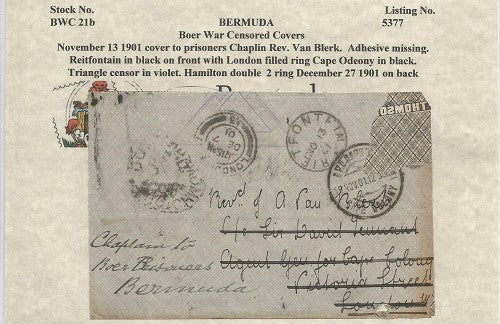 Stock No.
BWC 21b
BERMUDA
Boer War Censored Covers
Listing No.
5377
November 13 1901 cover to prisoners Chaplin Rev. Van Blerk. Adhesive missing.
Reitfontain in black on front with London filled ring Cape Odeony in black.
Triangle censor in violet. Hamilton double 2 ring December 27 1901 on back
RIETFONTEIN
NO 13
LONDON
DE 7
01
Revd. J A Van
C/o Sir David Tennant
Agent Gen for Cape Colony
Victoria Street
London
Chaplain to
Boer Prisoners
Bermuda